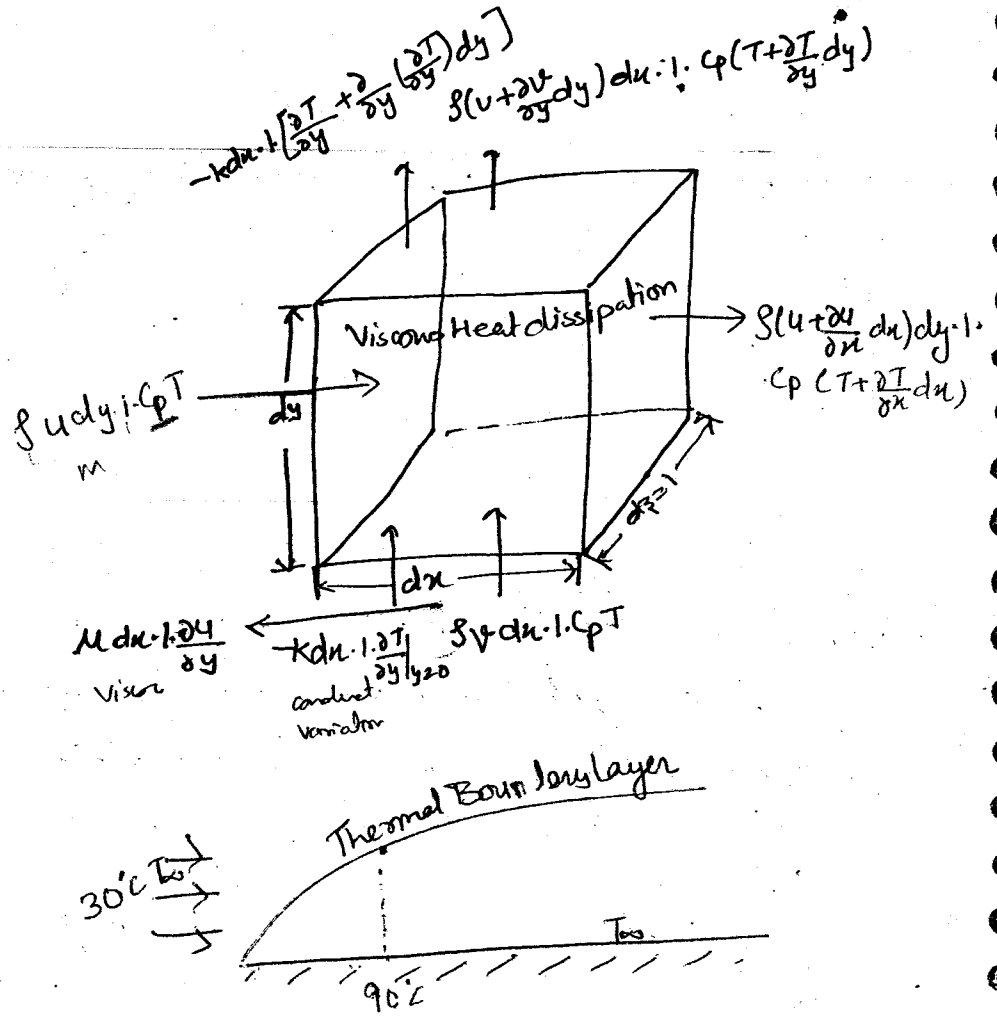 -kdx·1·[∂T/∂y + ∂/∂y (∂T/∂y) dy]
ρ(v+∂v/∂y dy) dx·1· Cp(T+∂T/∂y dy)
Viscous Heat dissipation
ρ(u+∂u/∂x dx) dy·1·
·Cp (T+∂T/∂x dx)
ρ u dy 1·CpT
m
dy
dz=1
dx
μ dx·1·∂u/∂y
-kdx·1·∂T/∂y|y=0
ρ v dx·1·CpT
conduct
variation
Thermal Boundary Layer
30°C T∞
T∞
90°C